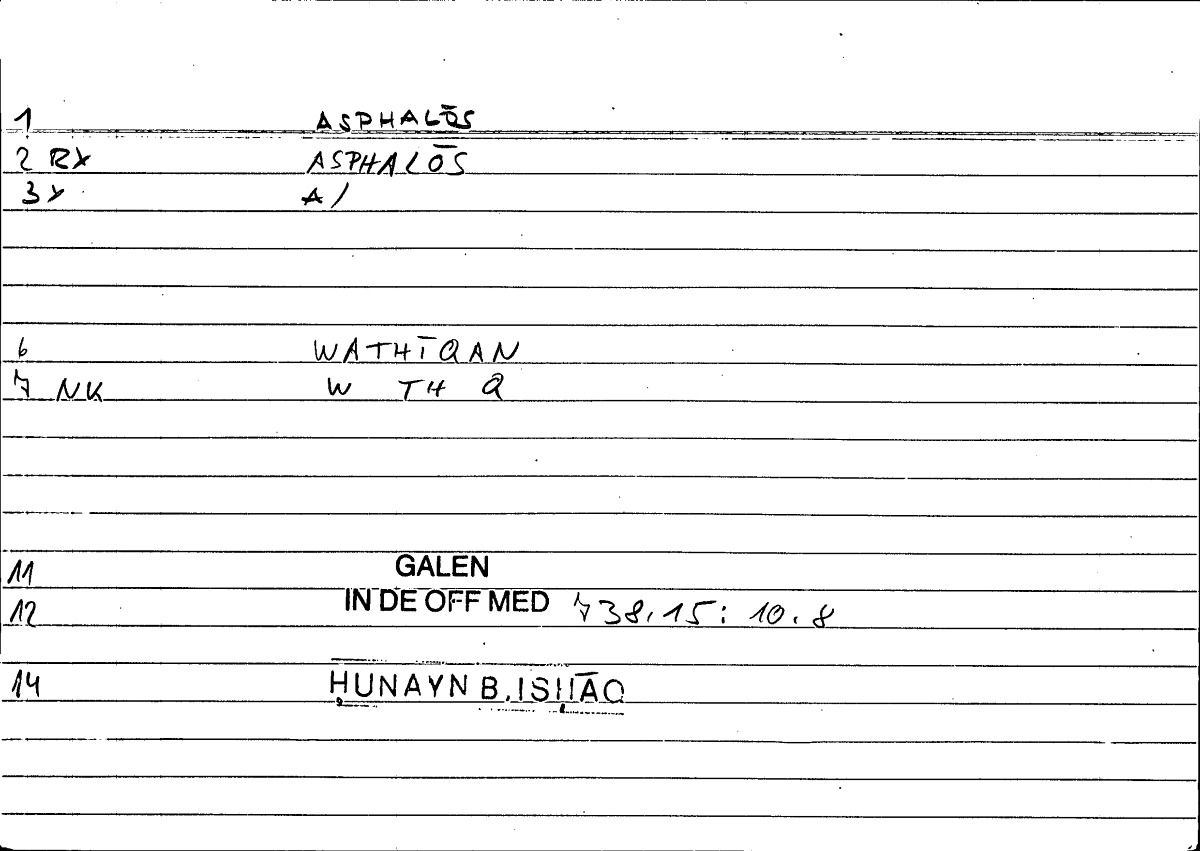 1 ASPHALŌS
2 RX ASPHALŌS
3X A/
6 WATHĪQAN
7 NK W TH Q
11 GALEN
12 IN DE OFF MED 738.15: 10.8
14 ḤUNAYN B. ISḤĀQ